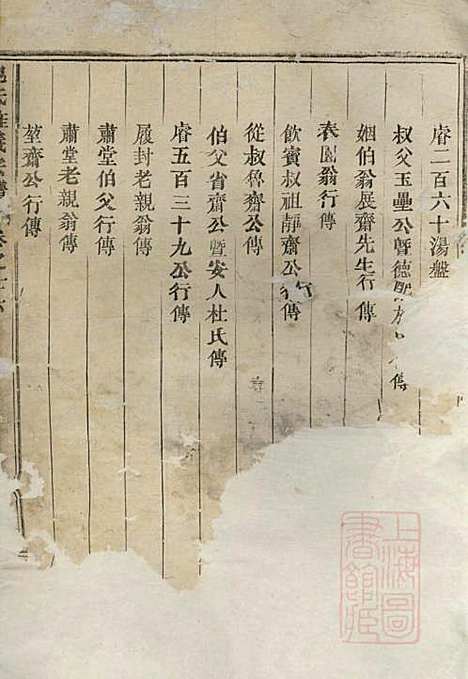 睿二百六十湯盤
叔父玉壘公暨德配 傳
姻伯翁展齋先生行傳
春園翁行傳
飲賓叔祖靜齋公行傳
從叔魯齋公傳
伯父省齋公暨安人杜氏傳
睿五百三十九公行傳
履封老親翁傳
肅堂伯父行傳
肅堂老親翁傳
堃齋公行傳
上海圖
書館